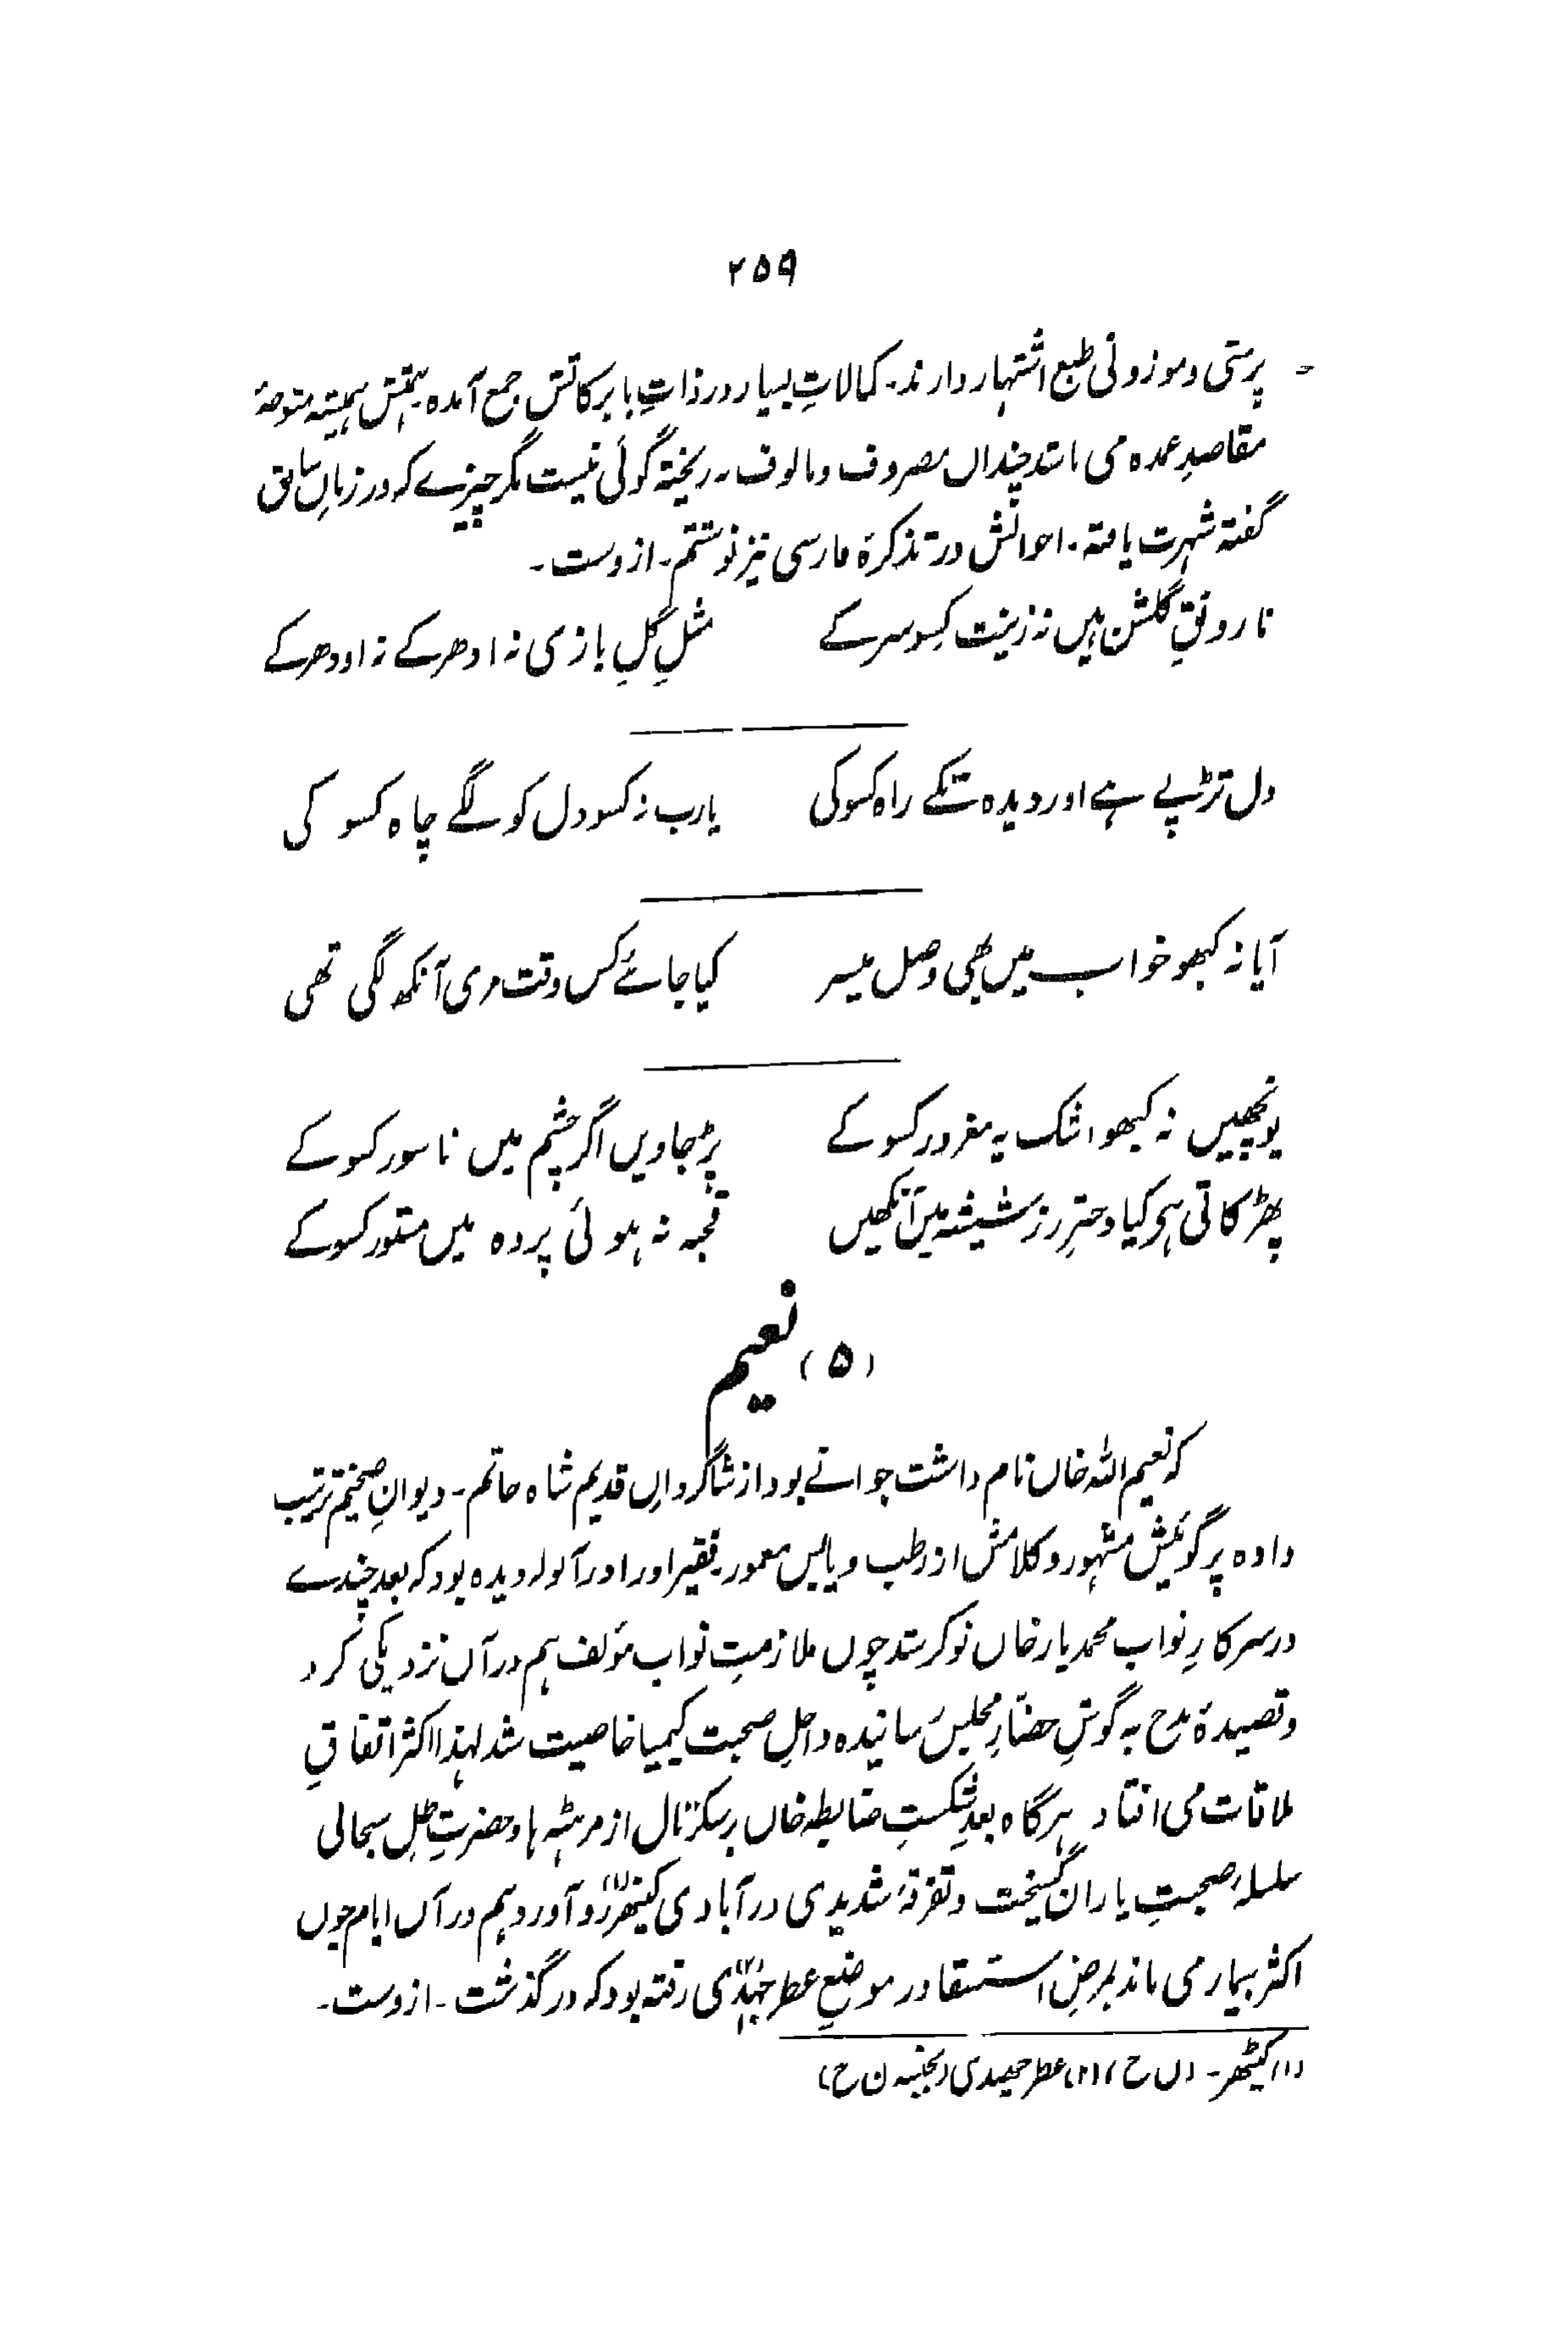 ۲۵۹
پرستی و موزونی طبع اشتہار دارند۔ کمالاتِ بسیار در ذاتِ با برکاتش جمع آمدہ ہمتش ہمیشہ متوجہٗ
مقاصدِ عمدہ می باشد چنداں مصروف و مالوف بہ ریختہ گوئی نیست مگر چیزے کہ در زمانِ سابق
گفتہ شہرت یافتہ۔ احوالش در تذکرۂ فارسی نیز نوشتم۔ ازوست۔
نا رونقِ گلشن ہیں نہ زینت کسو سر کے مثلِ گلِ بازی نہ ادھر کے نہ اودھر کے
دل تڑپے ہے اور دیدہ تکے راہ کسو کی یارب نہ کسو دل کو لگے چاہ کسو کی
آیا نہ کبھو خواب میں بھی وصل میسر کیا جانئے کس وقت مری آنکھ لگی تھی
پونچھیں نہ کبھو اشک یہ مغرور کسو کے پڑ جاویں اگر چشم میں ناسور کسو کے
پھڑکاتی ہے کیا دخترِ رز شیشہ میں آنکھیں قحبہ نہ ہوئی پردہ میں مستور کسو کے
(۵) نعیم
کہ نعیم اللہ خاں نام داشت جوانے بود از شاگردانِ قدیم شاہ حاتم۔ دیوانِ ضخیم ترتیب
دادہ پرگوئیش مشہور و کلامش از رطب و یابس معمور۔ فقیر اورا در آنولہ دیدہ بود کہ بعد چندے
در سرکارِ نواب محمد یار خاں نوکر شد چوں ملازمتِ نواب مؤلف ہم در آں نزدیکی کرد
و قصیدۂ مدح بہ گوشِ حضّارِ مجلس رسانیدہ داخلِ صحبت کیمیا خاصیت شد لہٰذا اکثر اتفاقِ
ملاقات می افتاد ہرگاہ بعدِ شکستِ ضابطہ خاں بر سکرتال از مرہٹہ ہا و حضرتِ ظلِ سبحانی
سلسلۂ صحبتِ یاراں گسیخت و تفرقۂ شدیدی در آبادی کیتھر(۱) رو آورد و ہم در آں ایام چوں
اکثر بیمار می ماند بمرضِ استسقا در موضع عطر جہیدی(۲) رفتہ بود کہ در گذشت۔ ازوست۔
(۱) کیٹھر۔ (ں ح) (۲) عطر حصیدی (بجنسہ ن ح)